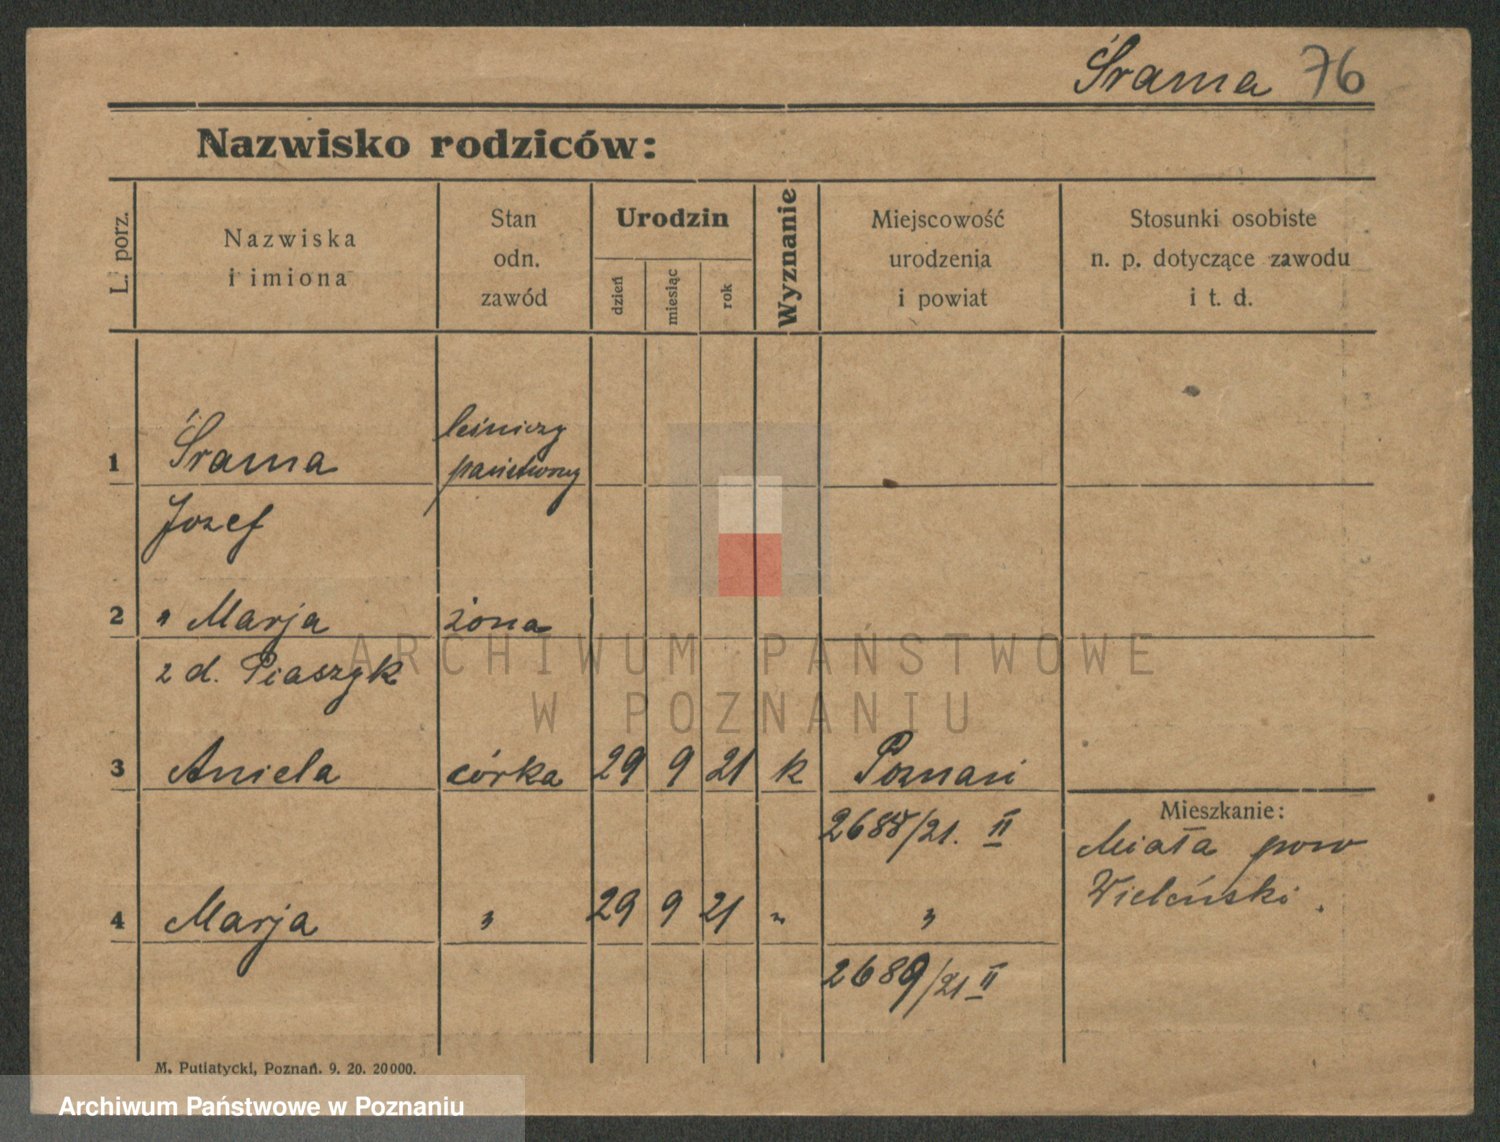 Śrama 76
Nazwisko rodziców:
L. porz.
Nazwiska
i imiona
Stan
odn.
zawód
Urodzin
dzień
miesiąc
rok
Wyznanie
Miejscowość
urodzenia
i powiat
Stosunki osobiste
n. p. dotyczące zawodu
i t. d.
1 Śrama leśniczy
państwowy
Józef
2 " Marja żona
z d. Piaszyk
3 Aniela córka 29 9 21 k Poznań
2688/21. II
Mieszkanie:
Miała pow
Wieleński.
4 Marja " 29 9 21 " "
2689/21 II
M. Putiatycki, Poznań. 9. 20. 20000.
ARCHIWUM PAŃSTWOWE
W POZNANIU
Archiwum Państwowe w Poznaniu